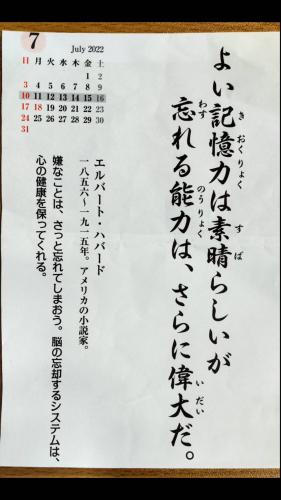 7
July 2022
日 月 火 水 木 金 土
1 2
3 4 5 6 7 8 9
10 11 12 13 14 15 16
17 18 19 20 21 22 23
24 25 26 27 28 29 30
31
よい記憶力は素晴らしいが
きおくりょく
すば
忘れる能力は、さらに偉大だ。
わす
のうりょく
いだい
エルバート・ハバード
一八五六〜一九一五年。アメリカの小説家。
嫌なことは、さっと忘れてしまおう。脳の忘却するシステムは、
心の健康を保ってくれる。